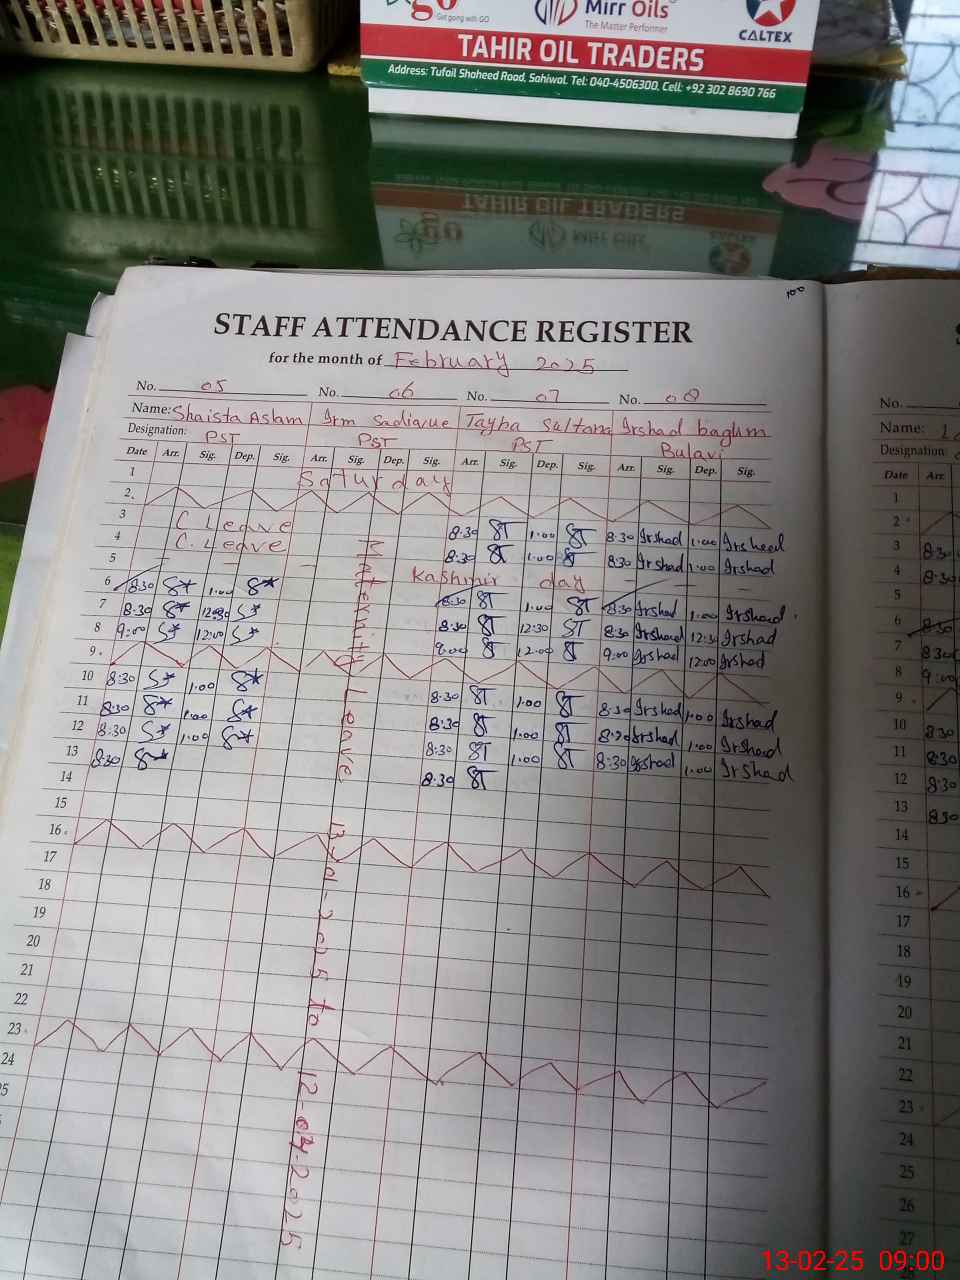 go Mirr Oils
Get going with GO The Master Performer CALTEX
TAHIR OIL TRADERS
Address: Tufail Shaheed Road, Sahiwal. Tel: 040-4506300, Cell: +92 302 8690 766
100
STAFF ATTENDANCE REGISTER
for the month of February 2025
No. 05 No. 06 No. 07 No. 08 No.
Name: Shaista Aslam Irm Sadiavue Tayba Sultana Irshad bagum Name:
Designation: PST PST PST Bulavi Designation:
Date Arr. Sig. Dep. Sig. Arr. Sig. Dep. Sig. Arr. Sig. Dep. Sig. Arr. Sig. Dep. Sig. Date Arr.
1 Saturday 1
2 2
3 C Leave 8:30 ST 1:00 ST 8:30 Irshad 1:00 Irshad 3 8:30
4 C. Leave 8:30 ST 1:00 ST 8:30 Irshad 1:00 Irshad 4 8:30
5 Kashmir day 5
6 8:30 S* 1:00 S* 8:30 ST 1:00 ST 8:30 Irshad 1:00 Irshad 6 8:30
7 8:30 S* 12:30 S* 8:30 ST 12:30 ST 8:30 Irshad 12:30 Irshad 7 8:30
8 9:00 S* 12:00 S* 9:00 ST 12:00 ST 9:00 Irshad 12:00 Irshad 8 9:00
9 9
10 8:30 S* 1:00 S* 8:30 ST 1:00 ST 8:30 Irshad 1:00 Irshad 10 8:30
11 8:30 S* 1:00 S* 8:30 ST 1:00 ST 8:30 Irshad 1:00 Irshad 11 8:30
12 8:30 S* 1:00 S* 8:30 ST 1:00 ST 8:30 Irshad 1:00 Irshad 12 8:30
13 8:30 S* 8:30 ST 13 8:30
14 14
15 15
16 16
17 17
18 18
19 19
20 20
21 21
22 22
23 23
24 24
25
26
27
Maternity Leave 13-01-2025 to 12.04.2025
13-02-25 09:00